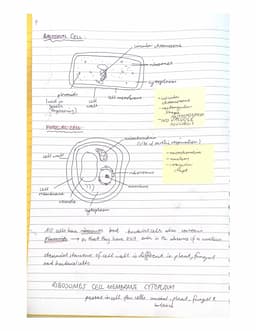 BACTERIAL CELL:
circular chromosome
ribosomes
cytoplasm
plasmids
(used in genetic engineering)
cell wall
cell membrane
- circular chromosome
- rectangular shape
- NO NUCLEUS
FUNGAL CELL:
mitochondria
(site of aerobic respiration)
cell wall
ribosomes
nucleus
cell membrane
vacuole
cytoplasm
- mitochondria
- nucleus
- shape
All cells have ribosomes and bacterial cells also contain
Plasmids → so that they have DNA even in the absence of a nucleus
chemical structure of cell wall is different in plant, fungal
and bacterial cells
RIBOSOMES CELL MEMBRANE CYTOPLASM
present in all four cells animal, plant, fungal &
bacteria